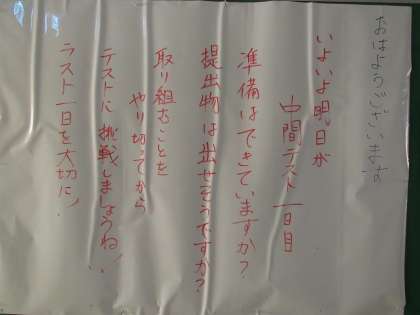 おはようございます
いよいよ明日が
中間テスト一日目
準備はできていますか?
提出物は出せそうですか?
取り組むことを
やり切ってから
テストに挑戦しましょうね!
ラスト一日を大切に!